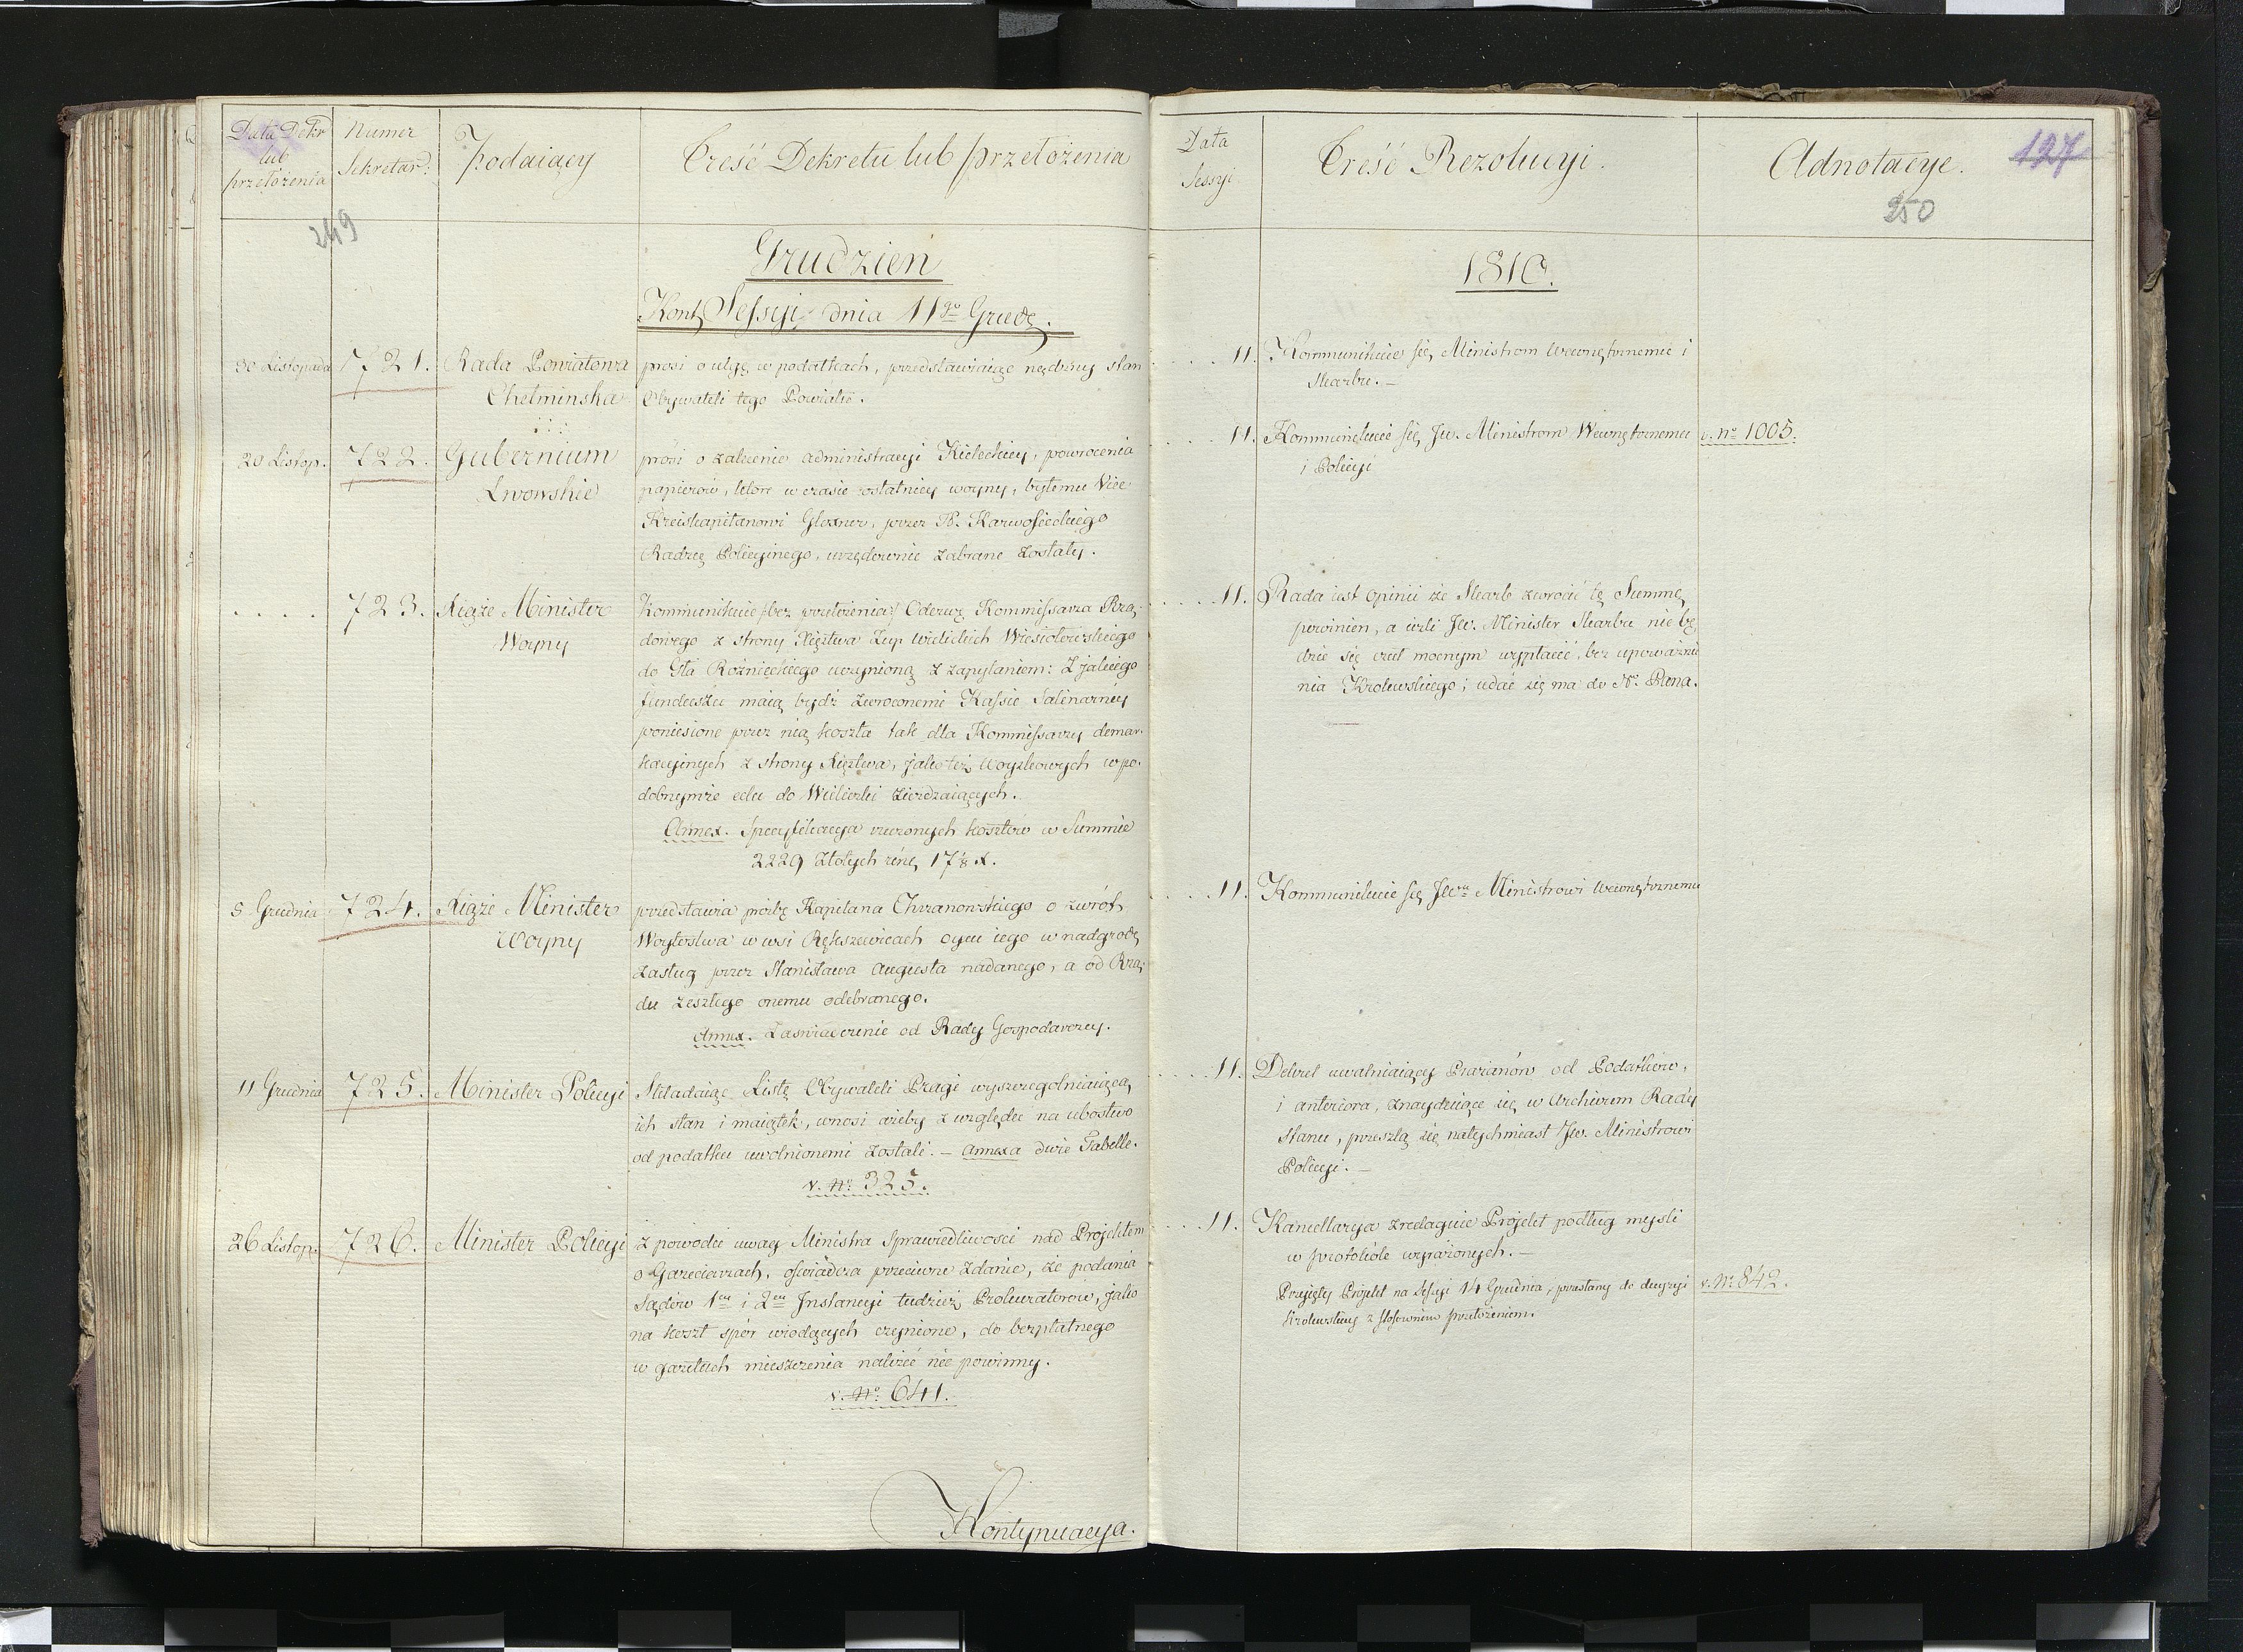 Data Dekr
lub
przełożenia
Numer
Sekretar:
Podaiący
Treść Dekretu lub przełożenia
249
Grudzień
Kont. Sessyi dnia 11go Grudz.
30 Listopada
721.
Rada Powiatowa
Chełminska
prosi o ulgę w podatkach, przedstawiaiąc nędzny stan
Obywateli tego Powiatu.
20 Listop.
722.
Gubernium
Lwowskie
prosi o zalecenie administracyi Kieleckiey, powrocenia
papierow, ktore w czasie ostatniey woyny, byłemu Vice
Kreiskapitanowi Glosner, przez P. Karwosieckiego
Radzcę Policyinego, urzędownie zabrane zostały.
. . . .
723.
Xiąże Minister
Woyny
Kommunikuie /bez przełożenia/ Odezwę Kommissarza Rzą-
dowego z strony Xięztwa Żup Wielickich Wiesiołowskiego
do Gła Rożnieckiego uczynioną z zapytaniem: Z jakiego
funduszu maią bydź zwroconemi Kassie Salinarney
poniesione przez nią koszta tak dla Kommissarzy demar-
kacyinych z strony Xięztwa, jako też Woyskowych w po-
dobnymże celu do Wieliczki ziezdzaiących.
Annex. Specyfikacya rzeczonych kosztow w Summie
2229 Złotych ... 17⅛ x.
5 Grudnia
724.
Xiąże Minister
Woyny
przedstawia prośbę Kapitana Chrzanowskiego o zwrót
Woytostwa w wsi Rększewicach oycu iego w nadgrodę
zasług przez Stanisława Augusta nadanego, a od Rzą-
du zeszłego onemu odebranego.
Annex. Zaświadczenie od Rady Gospodarczey.
11 Grudnia
725.
Minister Policyi
Składaiąc Listę Obywateli Pragi wyszczegolniaiącą
ich stan i maiątek, wnosi ażeby z względu na ubostwo
od podatku uwolnionemi zostali. – Annexa dwie Tabelle.
v. No 325.
26 Listop.
726.
Minister Policyi
Z powodu uwag Ministra Sprawiedliwości nad Projektem
o Gazeciarzach, oświadcza przeciwne zdanie, że podania
Sądów 1ey i 2ey Jnstancyi tudzież Prokuratorow, jako
na koszt spór wiodących czynione, do bezpłatnego
w gazetach mieszczenia należéć nie powinny.
v. No 641.
Kontynuacya.
Data
Sessyi
Treść Rezolucyi.
Adnotacye.
127
250
1810.
. . . 11.
Kommunikuie się Ministrom Wewnętrznemu i
Skarbu. –
. . . 11.
Kommunikuie się Jw. Ministrom Wewnętrznemu
i Policyi
v. No 1005.
. . . . 11.
Rada iest opinii że Skarb zwrocić tę Summę
powinien, a ieżli Jw. Minister Skarbu nie bę
dzie się czuł mocnym wypłacić, bez upoważnie
nia Krolewskiego; udać się ma do N. Pana.
. . . 11.
Kommunikuie się Jwu Ministrowi Wewnętrznemu
. . . . 11.
Dekret uwalniaiący Prażanów od Podatków,
i anteriora, znayduiące się w Archivum Rady
Stanu, przeszlą się natychmiast Jw. Ministrowi
Policyi. –
. . . 11.
Kancellarya zredaguie Projekt podług mysli
w protokóle wyrażonych. –
Przyięty Projekt na Sessyi 14 Grudnia, przesłany do decyzyi
Krolewskiey z stosownem przełożeniem.
v. No 842.